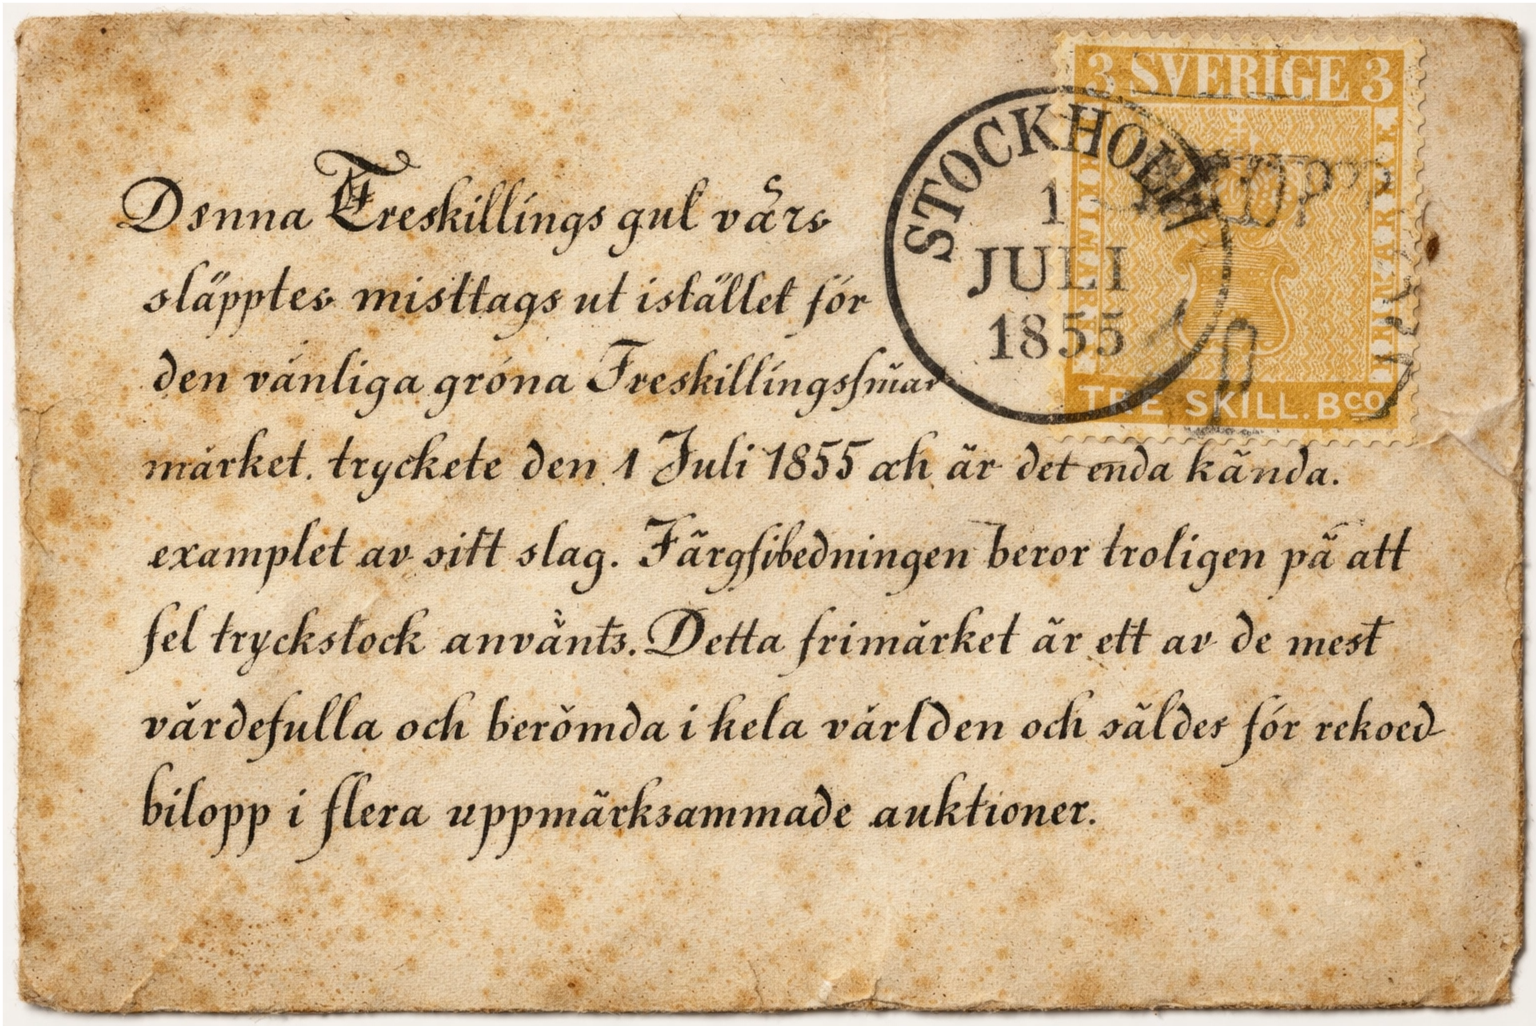 3 SVERIGE 3
FRIMÄRKE
TRE SKILL. Bco
STOCKHOLM
1
JULI
1855
Dsnna Treskillings gul vårs
släpptes misttags ut istället för
den vänliga gröna Treskillingsfmar
märket. tryckete den 1 Juli 1855 och är det enda kända.
examplet av sitt slag. Färgfibedningen beror troligen på att
fel tryckstock använts. Detta frimärket är ett av de mest
värdefulla och berömda i hela världen och såldes för rekoed
bilopp i flera uppmärksammade auktioner.